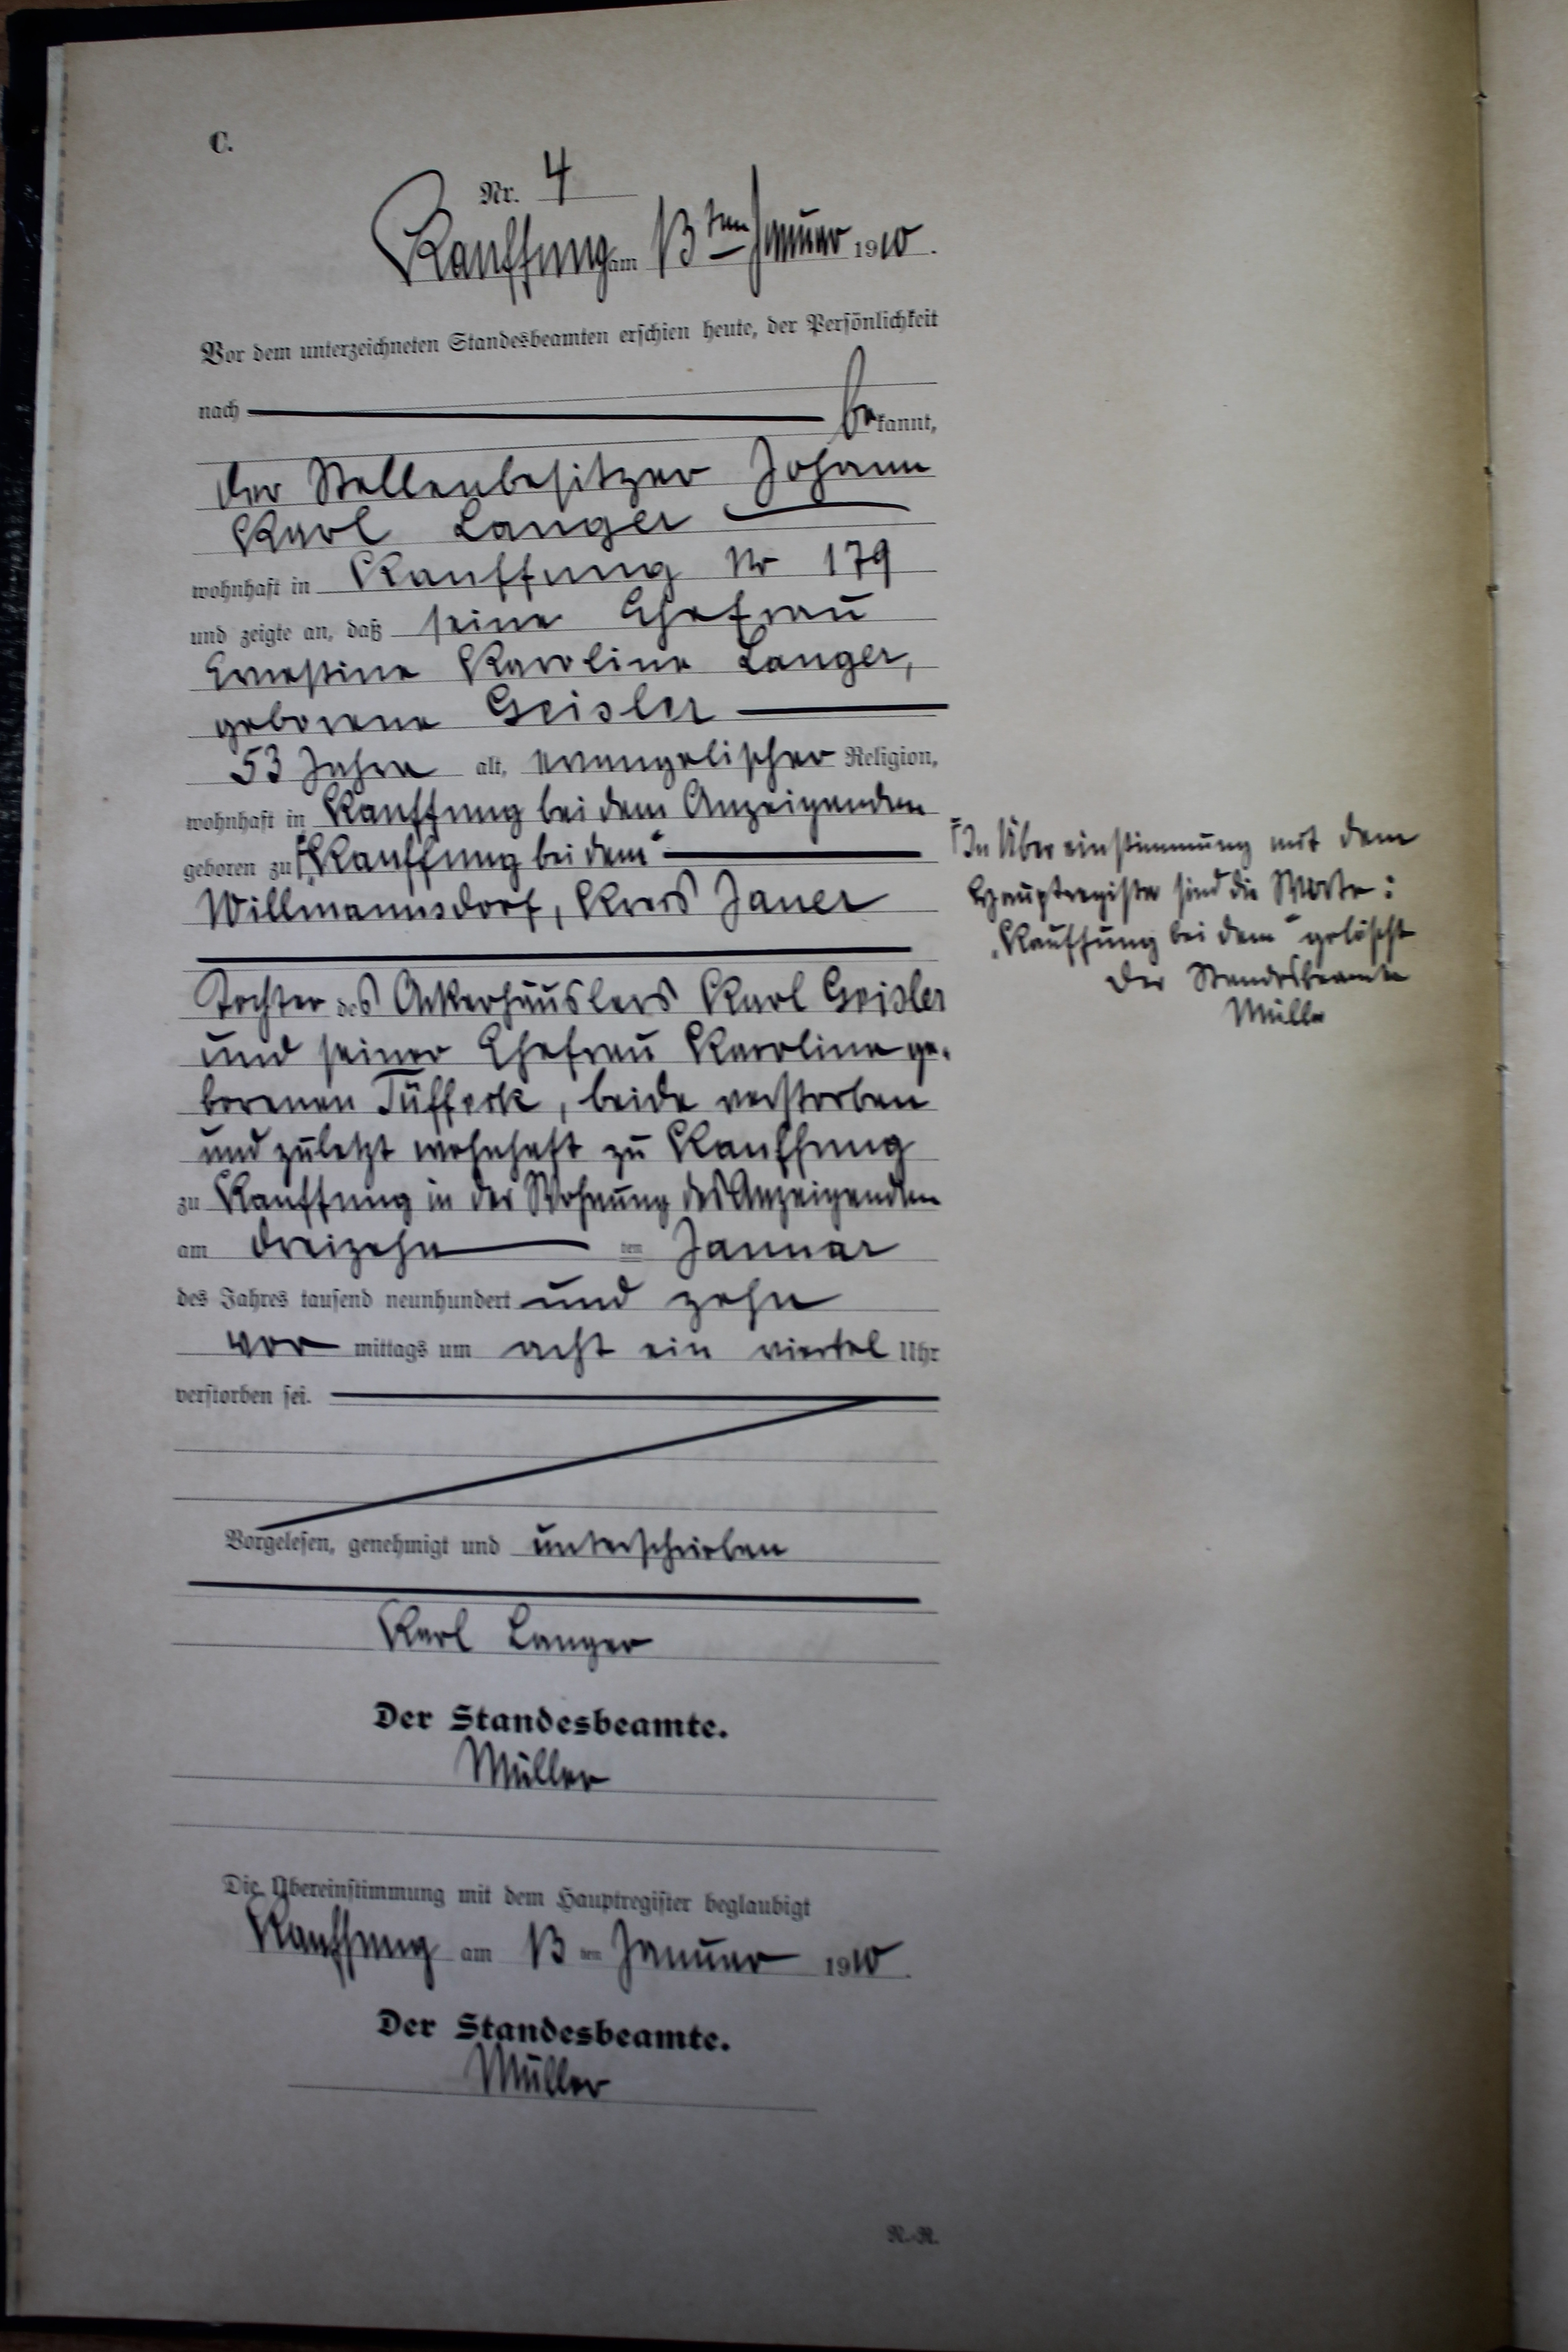 C.
Nr. 4
Kauffung am 13ten Januar 1910.
Vor dem unterzeichneten Standesbeamten erschien heute, der Persönlichkeit
nach bekannt,
der Stellenbesitzer Johann
Karl Langer
wohnhaft in Kauffung Nr 179
und zeigte an, daß seine Ehefrau
Ernestine Karoline Langer,
geborene Geisler
53 Jahre alt, evangelischer Religion,
wohnhaft in Kauffung bei dem Anzeigenden
geboren zu „Kauffung bei dem“
Willmannsdorf, Kreis Jauer
Tochter des Ackerhäuslers Karl Geisler
und seiner Ehefrau Karoline ge-
borenen Tüffert, beide verstorben
und zuletzt wohnhaft zu Kauffung
zu Kauffung in der Wohnung des Anzeigenden
am dreizehn ten Januar
des Jahres tausend neunhundert und zehn
vor mittags um acht ein viertel Uhr
verstorben sei.
Vorgelesen, genehmigt und unterschrieben
Karl Langer
Der Standesbeamte.
Müller
Die Übereinstimmung mit dem Hauptregister beglaubigt
Kauffung am 13 ten Januar 1910.
Der Standesbeamte.
Müller
In Übereinstimmung mit dem
Hauptregister sind die Worte:
„Kauffung bei dem“ gelöscht
Der Standesbeamte
Müller